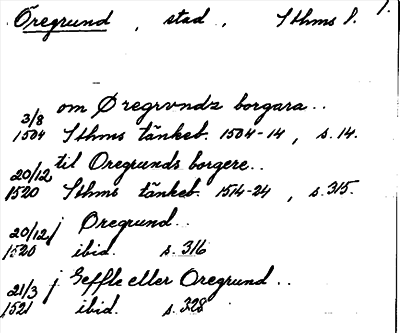 Öregrund, stad, Sthms l. 1.
om Øregrvndz borgara..
3/8 1504 Sthms tänkeb. 1504-14, s. 14.
til Oregrunds borgere..
20/12 1520 Sthms tänkeb. 1514-24, s. 315.
j Øregrund..
20/12 1520 ibid. s. 316
j Geffle eller Oregrund..
21/3 1521 ibid. s. 328